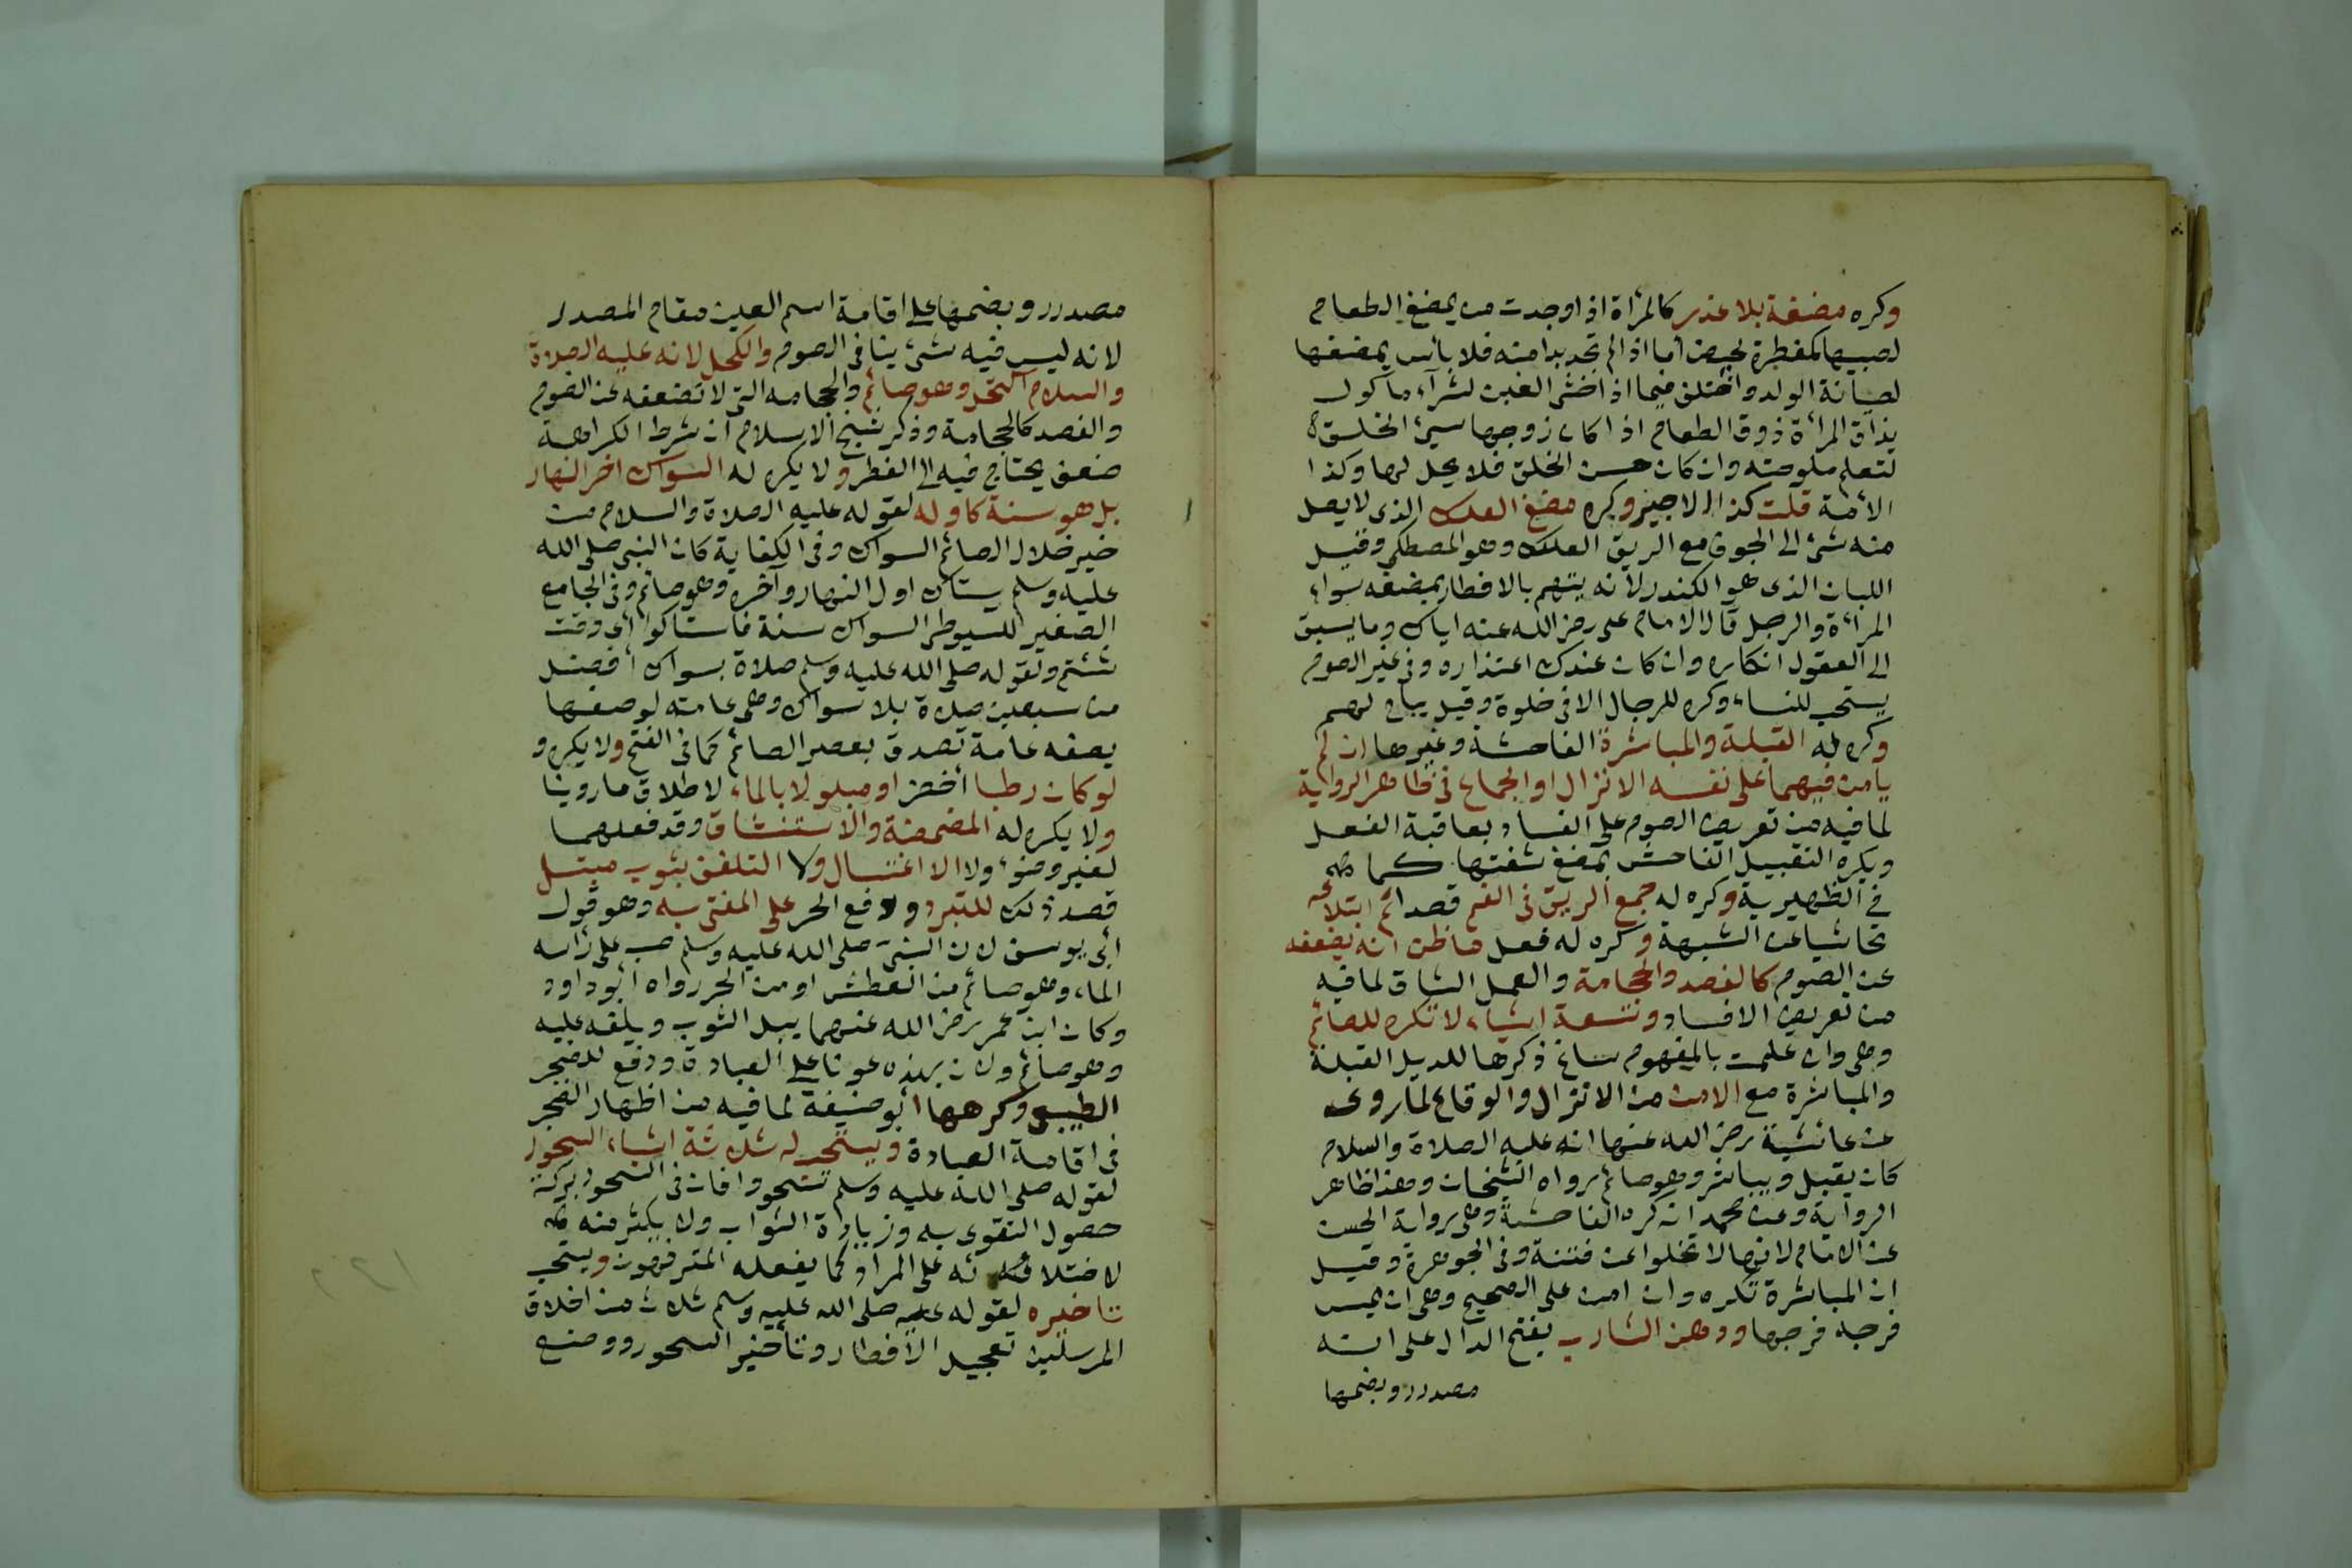 وكره مضغة بلا عذر كالمرأة اذا وجدت من يمضغ الطعام
لصبيها كمفطرة لحيض أما اذا لم تجد بدا منه فلا بأس بمضغها
لصيانة الولد واختلف فيما اذا خشى الغبن لشرآء مأكول
يذاق المرأة ذوق الطعام اذا كان زوجها سيئ الخلق
لتعلم ملوحته وان كان حسن الخلق فلا يحل لها وكذا
الأمة قلت كذا الاجير وكره مضغ العلك الذى لا يصل
منه شئ الى الجوف مع الريق العلك وهو المصطكى وقيل
اللبان الذى هو الكندر لأنه يتهم بالافطار بمضغه سواء
المرأة والرجل قال الامام على رضى الله عنه اياك وما يسبق
الى العقول انكاره وان كان عندك اعتذاره وفى غير الصوم
يستحب للنساء وكره للرجال الا فى خلوة وقيل يباح لهم
وكره له القبلة والمباشرة الفاحشة وغيرها ان لم
يأمن فيهما على نفسه الانزال او الجماع فى ظاهر الرواية
لما فيه من تعريض الصوم على الفساد بعاقبة الفعل
ويكره التقبيل الفاحش بمضغ شفتها كما
فى الظهيرية وكره له جمع الريق فى الفم قصدا ثم ابتلاعه
تحاشيا عن الشبهة وكره له فعل ما ظن انه يضعفه
عن الصوم كالفصد والحجامة والعمل الشاق لما فيه
من تعريض الافساد وتسعة اشياء لا تكره للصائم
وهى وان علمت بالمفهوم ساغ ذكرها للدليل القبلة
والمباشرة مع الامن من الانزال والوقاع لما روى
عن عائشة رضى الله عنها انه عليه الصلاة والسلام
كان يقبل ويباشر وهو صائم رواه الشيخان وهذا ظاهر
الرواية وعن محمد انه كره الفاحشة وهى رواية الحسن
عن الامام لانها لا تخلوا عن فتنة وفى الجوهرة وقيل
ان المباشرة تكره وان امن على الصحيح وهى ان يمس
فرجه فرجها ودهن الشارب بفتح الدال على انه
مصدر وبضمها
مصدر وبضمها على اقامة اسم العين مقام المصدر
لانه ليس فيه شئ ينافى الصوم والكحل لانه عليه الصلاة
والسلام اكتحل وهو صائم والحجامه التى لا تضعفه عن الصوم
والفصد كالحجامة وذكر شيخ الاسلام ان شرط الكراهة
ضعف يحتاج فيه الى الفطر ولا يكره له السواك اخر النهار
بل هو سنة كاوله لقوله عليه الصلاة والسلام من
خير خلال الصائم السواك وفى الكفاية كان النبى صلى الله
عليه وسلم يستاك اول النهار وآخره وهو صائم وفى الجامع
الصغير للسيوطى السواك سنة فاستاكوا أى وقت
شئتم ولقوله صلى الله عليه وسلم صلاة بسواك أفضل
من سبعين صلاة بلا سواك وهى عامته لوصفها
بصفه عامة تصدق بعصر الصائم كما فى الفتح ولا يكره و
لو كان رطبا أخضر او مبلولا بالماء لاطلاق ما روينا
ولا يكره له المضمضة والاستنشاق وقد فعلهما
لغير وضوء ولا الاغتسال ولا التلفف بثوب مبتل
قصد ذلك للتبرد ودفع الحر على المفتى به وهو قول
أبى يوسف لان النبى صلى الله عليه وسلم صب على رأسه
الماء وهو صائم من العطش او من الحر رواه أبو داود
وكان ابن عمر رضى الله عنهما يبل الثوب ويلفه عليه
وهو صائم ولان بهذه عونا على العبادة ودفع للضجر
الطبيعى وكرهها أبو حنيفة لما فيه من اظهار الضجر
فى اقامة العبادة ويستحب له ثلاثة اشياء السحور
لقوله صلى الله عليه وسلم تسحروا فان فى السحور بركة
حصول التقوى به وزيادة الثواب ولا يكثر منه
على المراد كما يفعله المترفهون ويستحب
تاخيره لقوله عليه صلى الله عليه وسلم ثلاث من اخلاق
المرسلين تعجيل الأفطار وتأخير السحور ووضع